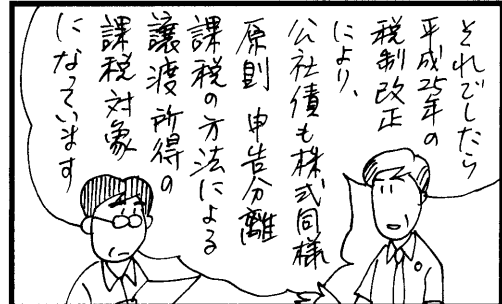 それでしたら
平成25年の
税制改正
により、
公社債も株式同様
原則 申告分離
課税の方法による
譲渡所得の
課税対象
になっています